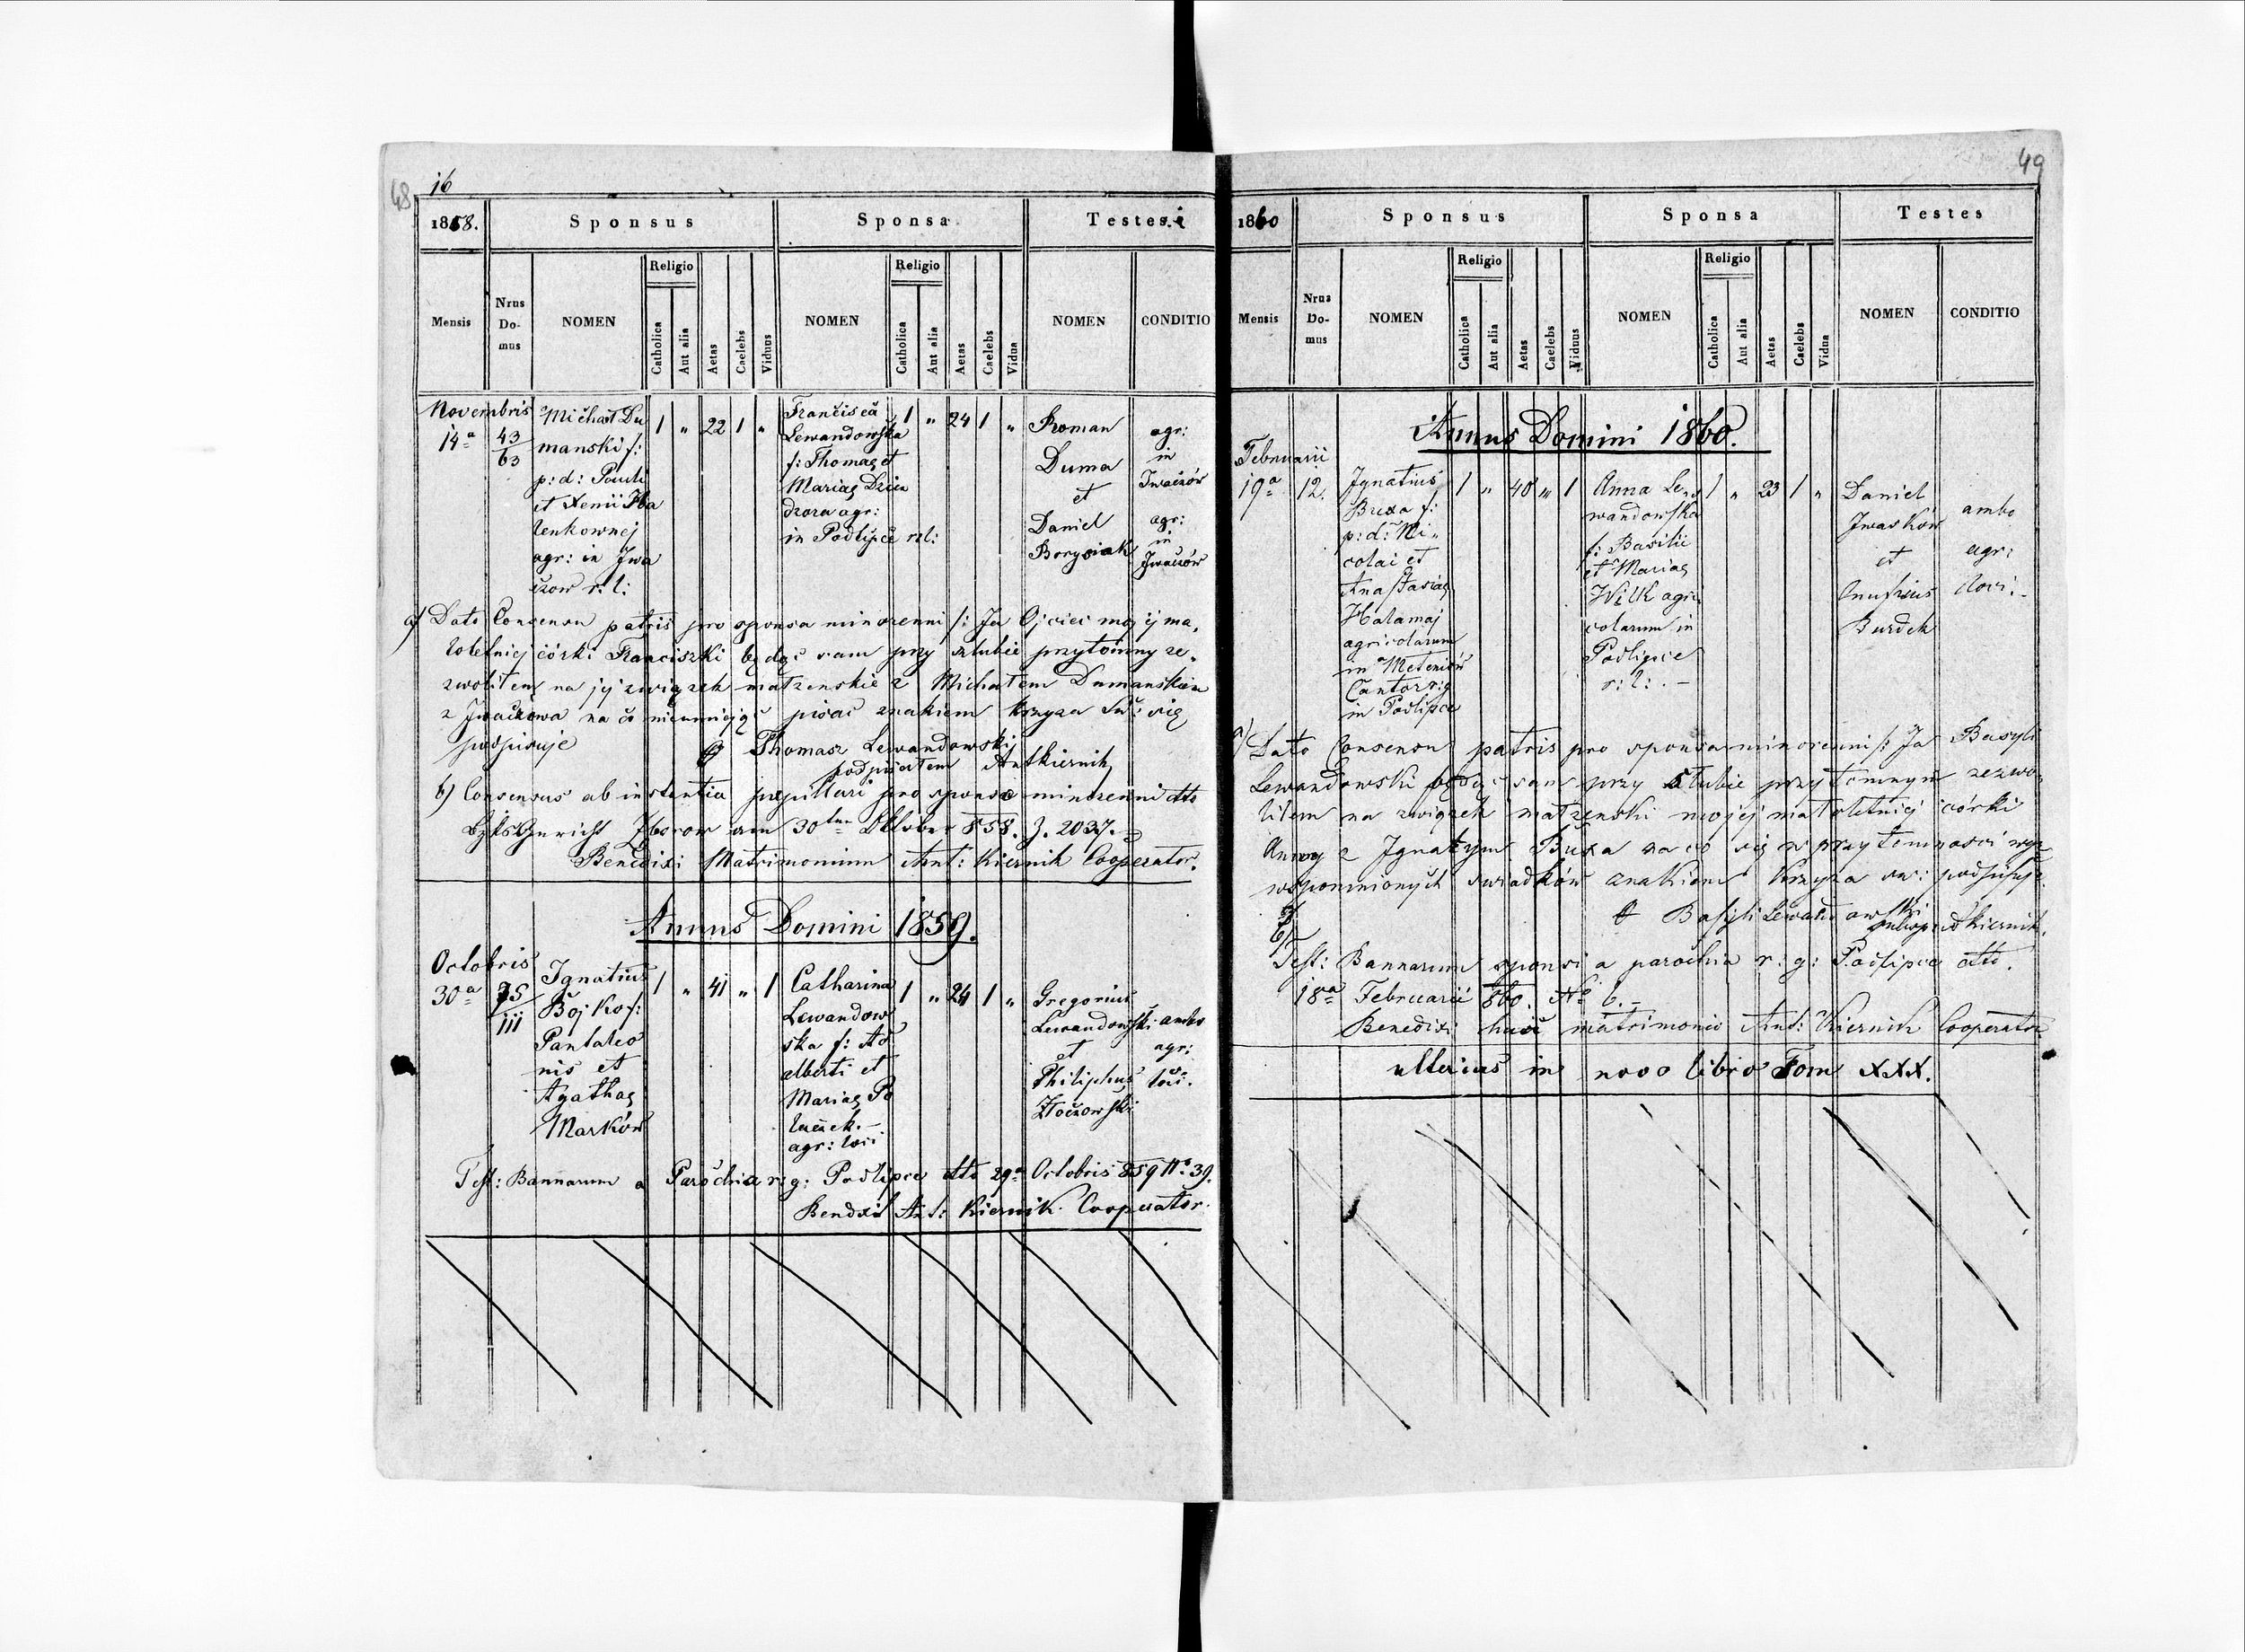 48
16
1858. Sponsus Sponsa Testes
Mensis Nrus Do-mus NOMEN Religio Catholica Aut alia Aetas Caelebs Viduus NOMEN Religio Catholica Aut alia Aetas Caelebs Vidua NOMEN CONDITIO
Novembris
14a 43 63
Michał Du
manski f:
p: d: Pauli
et Xenii Ha
lenkownej
agr: in Jwa
czow r: l:
1 " 22 1 "
Francisca
Lewandowska
f: Thomae et
Mariae Dzien
dzora agr:
in Podlipce r: l:
1 " 24 1 "
Roman
Duma
et
Daniel
Borysiak
agr:
in
Jwaczów
agr:
in
Jwaczów
a) Dato Consensu patris pro sponsa minorenni /: Ja Ojciec mojej ma„
łoletniej córki Franciszki będąc sam przy szlubie przytomny ze„
zwoliłem na jej związek małzenskie z Michałem Dumanskiem
z Jwaczowa na co nieumiejąc pisać znakiem krzyza Sw: się
podpisuje
Thomasz Lewandowskij
podpisałem Antkiernik
b) Consensus ab instantia pupillari pro sponso minorenni dtto
Bzks Gericht Zborow am 30ten Oktober 858. Z. 2037.
Benedixi Matrimonium Ant: Kiernik Cooperator.
Annus Domini 1859.
Octobris
30a 75 111
Ignatius
Bojko f:
Pantaleo
nis et
Agathae
Marków
1 " 41 " 1
Catharina
Lewandow
ska f: Ad
alberti et
Mariae Po
łuczek.–
agr: loci
1 " 24 1 "
Gregorius
Lewandowski
et
Philiphus
Złoczowski
ambo
agr:
loci.
Test: Bannarum a Parochia r: g: Podlipce dto 29a Octobris 859 No. 39.
Bendxit Ant: Kiernik Cooperator.
49
1860 Sponsus Sponsa Testes
Mensis Nrus Do-mus NOMEN Religio Catholica Aut alia Aetas Caelebs Viduus NOMEN Religio Catholica Aut alia Aetas Caelebs Vidua NOMEN CONDITIO
Annus Domini 1860.
Februarii
19a 12.
Ignatius
Buxa f:
p: d: Ni„
colai et
Anastasiae
Hałamaj
agricolarum
in Meteniów
Cantor r: g
in Podlipce
1 " 40 " 1
Anna Le„
wandowska
f: Basilii
et Mariae
Wilk agri
colarum in
Podlipce
r: l: . –
1 " 23 1 "
Daniel
Jwasków
et
Onufrius
Burdek
ambo
agr:
loci: –
a) Dato Consensu patris pro sponsa minorenni /: Ja Basyli
Lewandowski będąc sam przy ślubie przytomnym zezwo„
liłem na związek małzenski mojej małoletniej córki
Anny z Ignatym Buxa na co się w przytomności wyz
wspomnionych swiadków znakiem krzyza sw: podpisuje.
Basyli Lewandowski
Akiernik.
b)
Test: Bannarum sponsi a parochia r: g: Podlipce dtto.
18a Februarii 860. No 6. –
Benedixi huic matrimonio Ant: Kiernik Cooperator.
ulterius in novo libro Tom XXX.